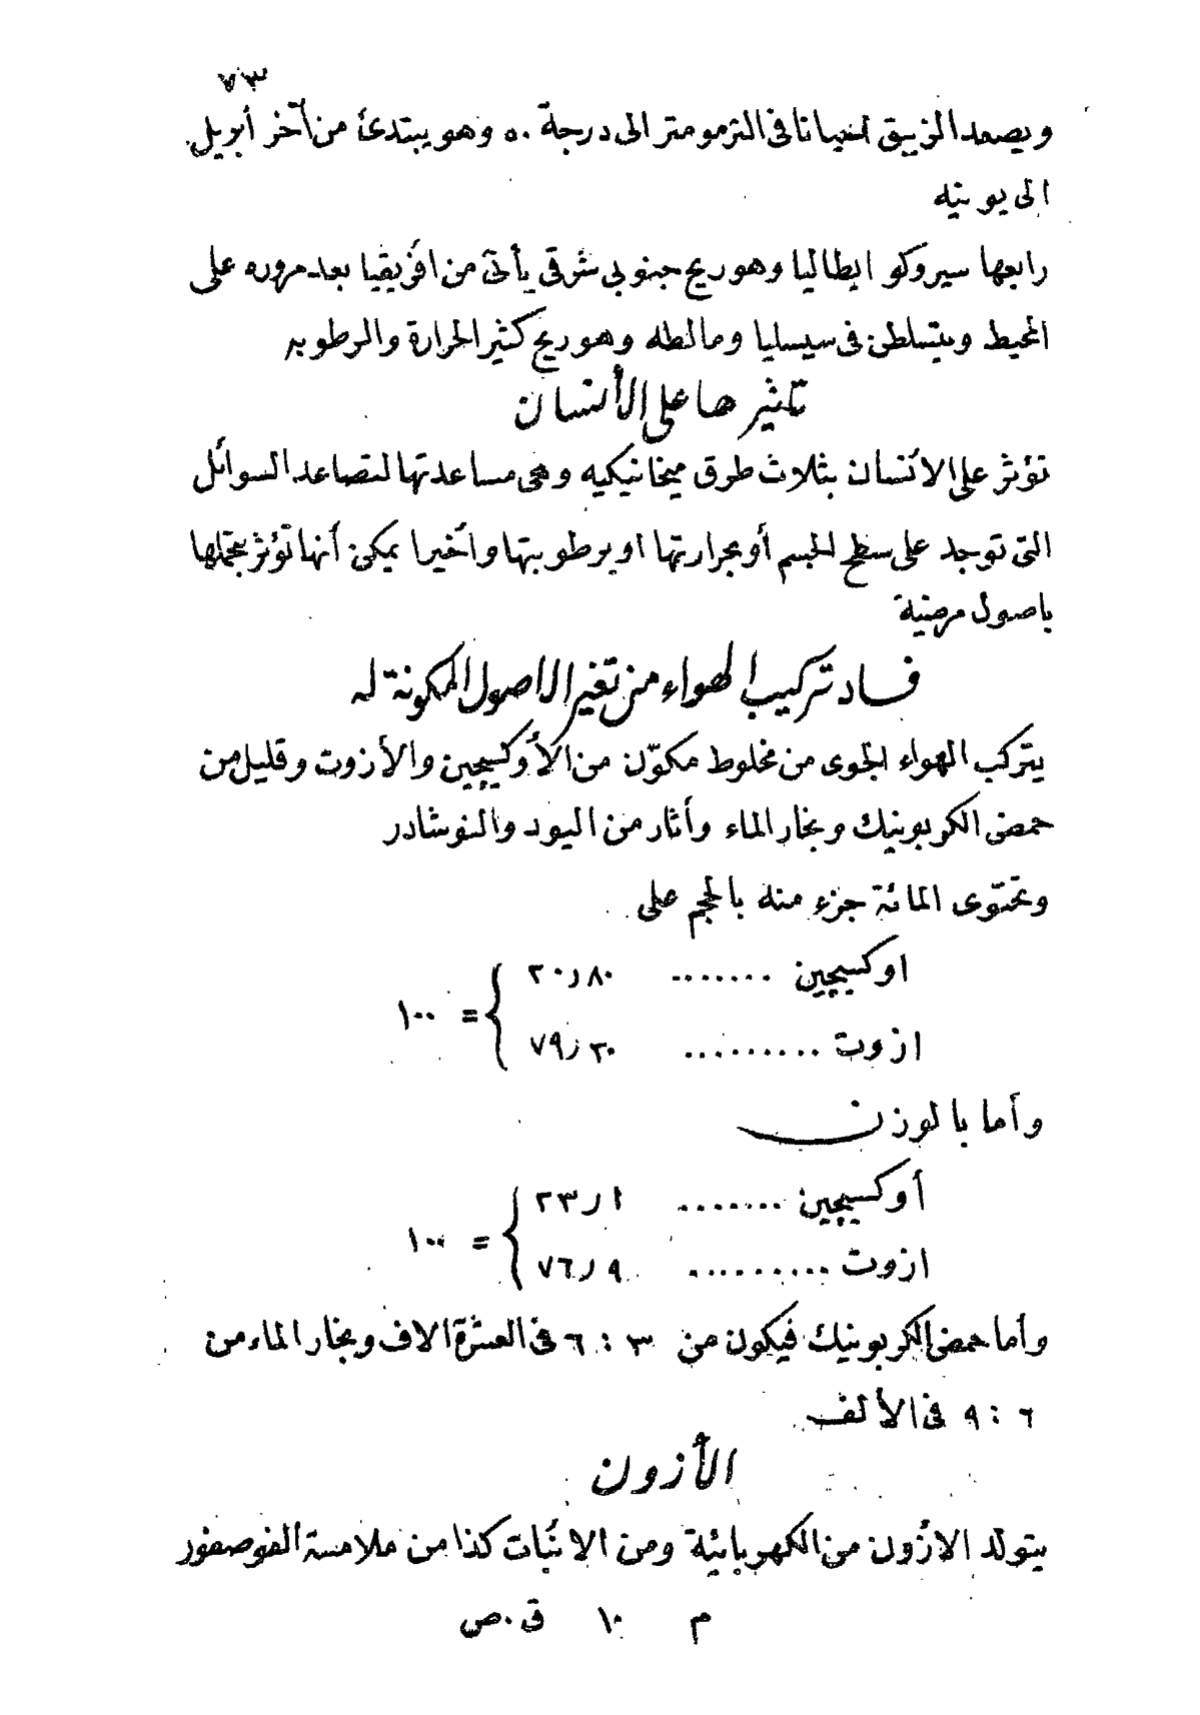 ٧٣
ويصعد الزيبق احيانا فى الترمومتر الى درجة ٥٠ وهو يبتدئ من آخر أبريل
الى يونيه
رابعها سيروكو ايطاليا وهو ريح جنوبى شرقى يأتى من افريقيا بعد مروره على
المحيط ويتسلطن فى سيسليا ومالطه وهو ريح كثير الحرارة والرطوبه
تاثيرها على الأنسان
تؤثر على الانسان بثلاث طرق ميخانيكيه وهى مساعدتها لتصاعد السوائل
التى توجد على سطح الجسم أو بحرارتها او برطوبتها وأخيرا يمكن أنها تؤثر بحملها
باصول مرضية
فساد تركيب الهواء من تغير الاصول المكونة له
يتركب الهواء الجوى من مخلوط مكوّن من الأوكسيجين والأزوت وقليل من
حمض الكربونيك وبخار الماء وأثار من اليود والنوشادر
وتحتوى المائة جزء منه بالحجم على
اوكسيجين ....... ٢٠٫٨٠
ازوت ......... ٧٩٫٢٠ } = ١٠٠
وأما بالوزن
أوكسيجين ....... ٢٣٫١
ازوت ......... ٧٦٫٩ } = ١٠٠
وأما حمض الكربونيك فيكون من ٣ : ٦ فى العشرة الاف وبخار الماء من
٦ : ٩ فى الألف
الأزون
يتولد الازون من الكهربائية ومن الانبات كذا من ملامسة الفوصفور
م ١٠ ق . ص